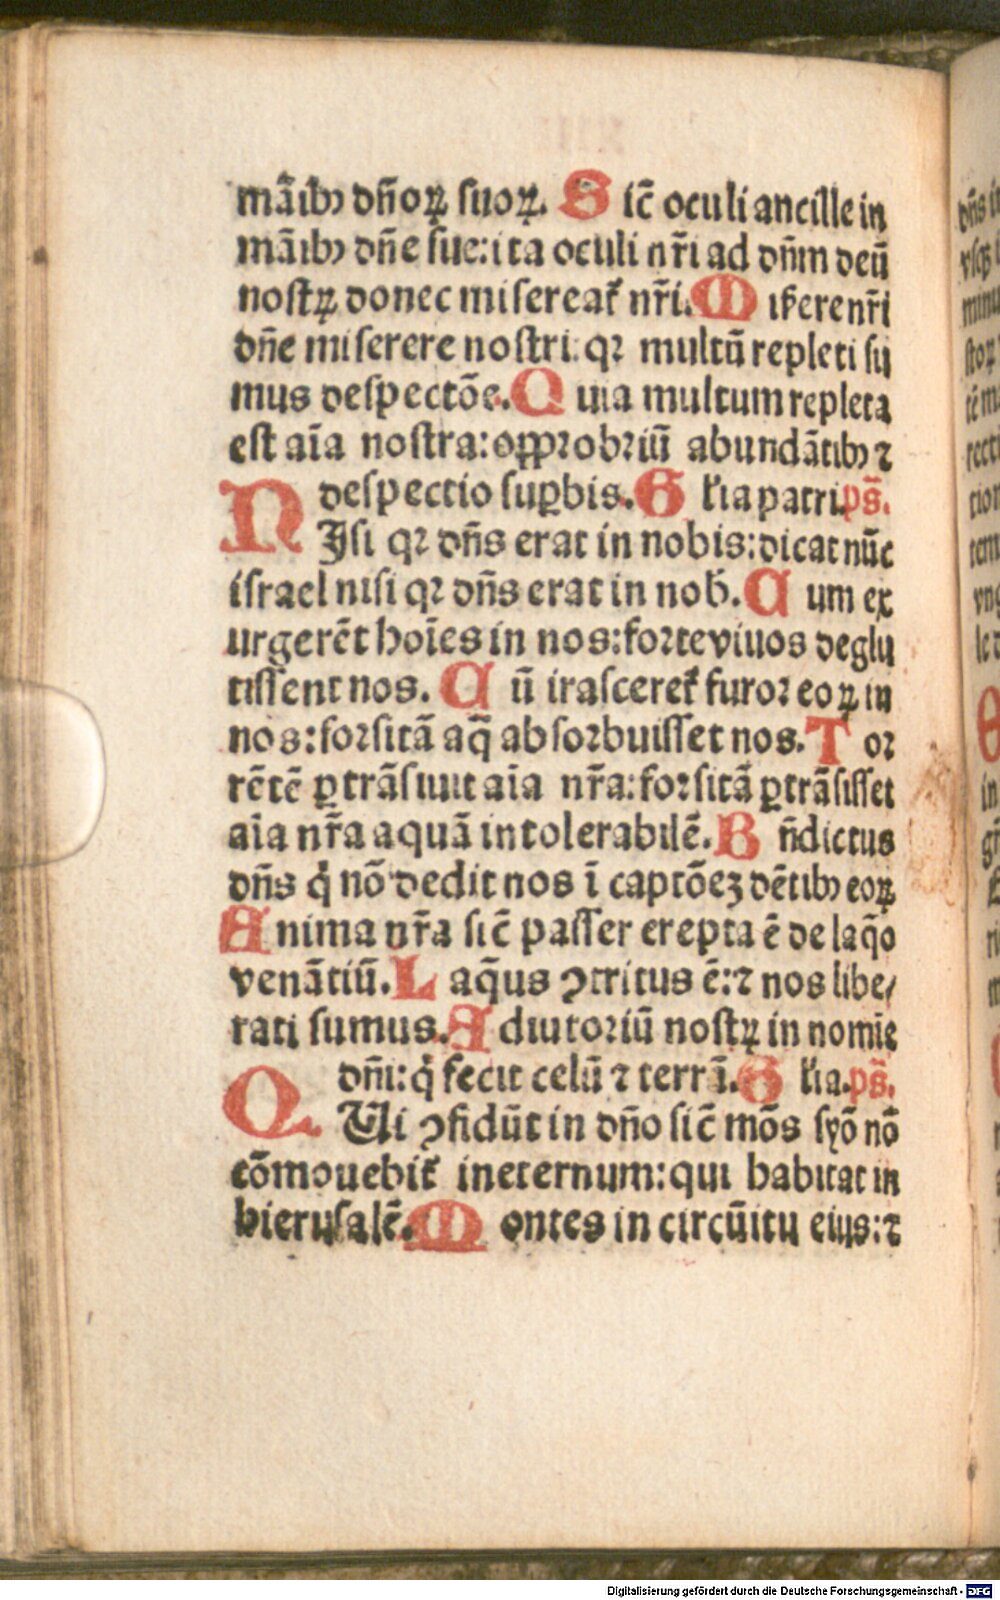 mãibꝰ dñoꝝ suoꝝ. Sic̃ oculi ancille in
mãibꝰ dñe sue: ita oculi nr̃i ad dñm deũ
nostꝝ donec misereat᷑ nr̃i. Miẜere nr̃i
dñe miserere nostri: qꝛ multũ repleti su
mus despectõe. Quia multum repleta
est aĩa nostra: opprobriũ abundãtibꝰ ⁊
despectio suꝑbis. Gl̃ia patri. ps̃.
NJsi qꝛ dñs erat in nobis: dicat nũc
israel nisi qꝛ dñs erat in nob̃. Cum ex
urgerẽt hoĩes in nos: forte viuos deglu
tissent nos. Cũ irasceret᷑ furor eoꝝ in
nos: forsitã aq̃ absorbuisset nos. Tor
rẽtẽ ꝑtrãsiuit aĩa nr̃a: forsitã ꝑtrãsisset
aĩa nr̃a aquã intolerabilẽ. Bñdictus
dñs q̇ nõ dedit nos ĩ captõeꝫ dẽtibꝰ eoꝝ
Anima nr̃a sic̃ passer erepta ẽ de laq̃o
venãtiũ. Laq̃us ꝯtritus ẽ: ⁊ nos libe/
rati sumus. Adiutoriũ nostꝝ in nomĩe
dñi: q̇ fecit celũ ⁊ terrã. Gl̃ia. ps̃.
QUi ꝯfidũt in dño sic̃ mõs syõ nõ
cõmouebit᷑ ineternum: qui habitat in
hierusalẽ. Montes in circũitu eius: ⁊
Digitalisierung gefördert durch die Deutsche Forschungsgemeinschaft - DFG